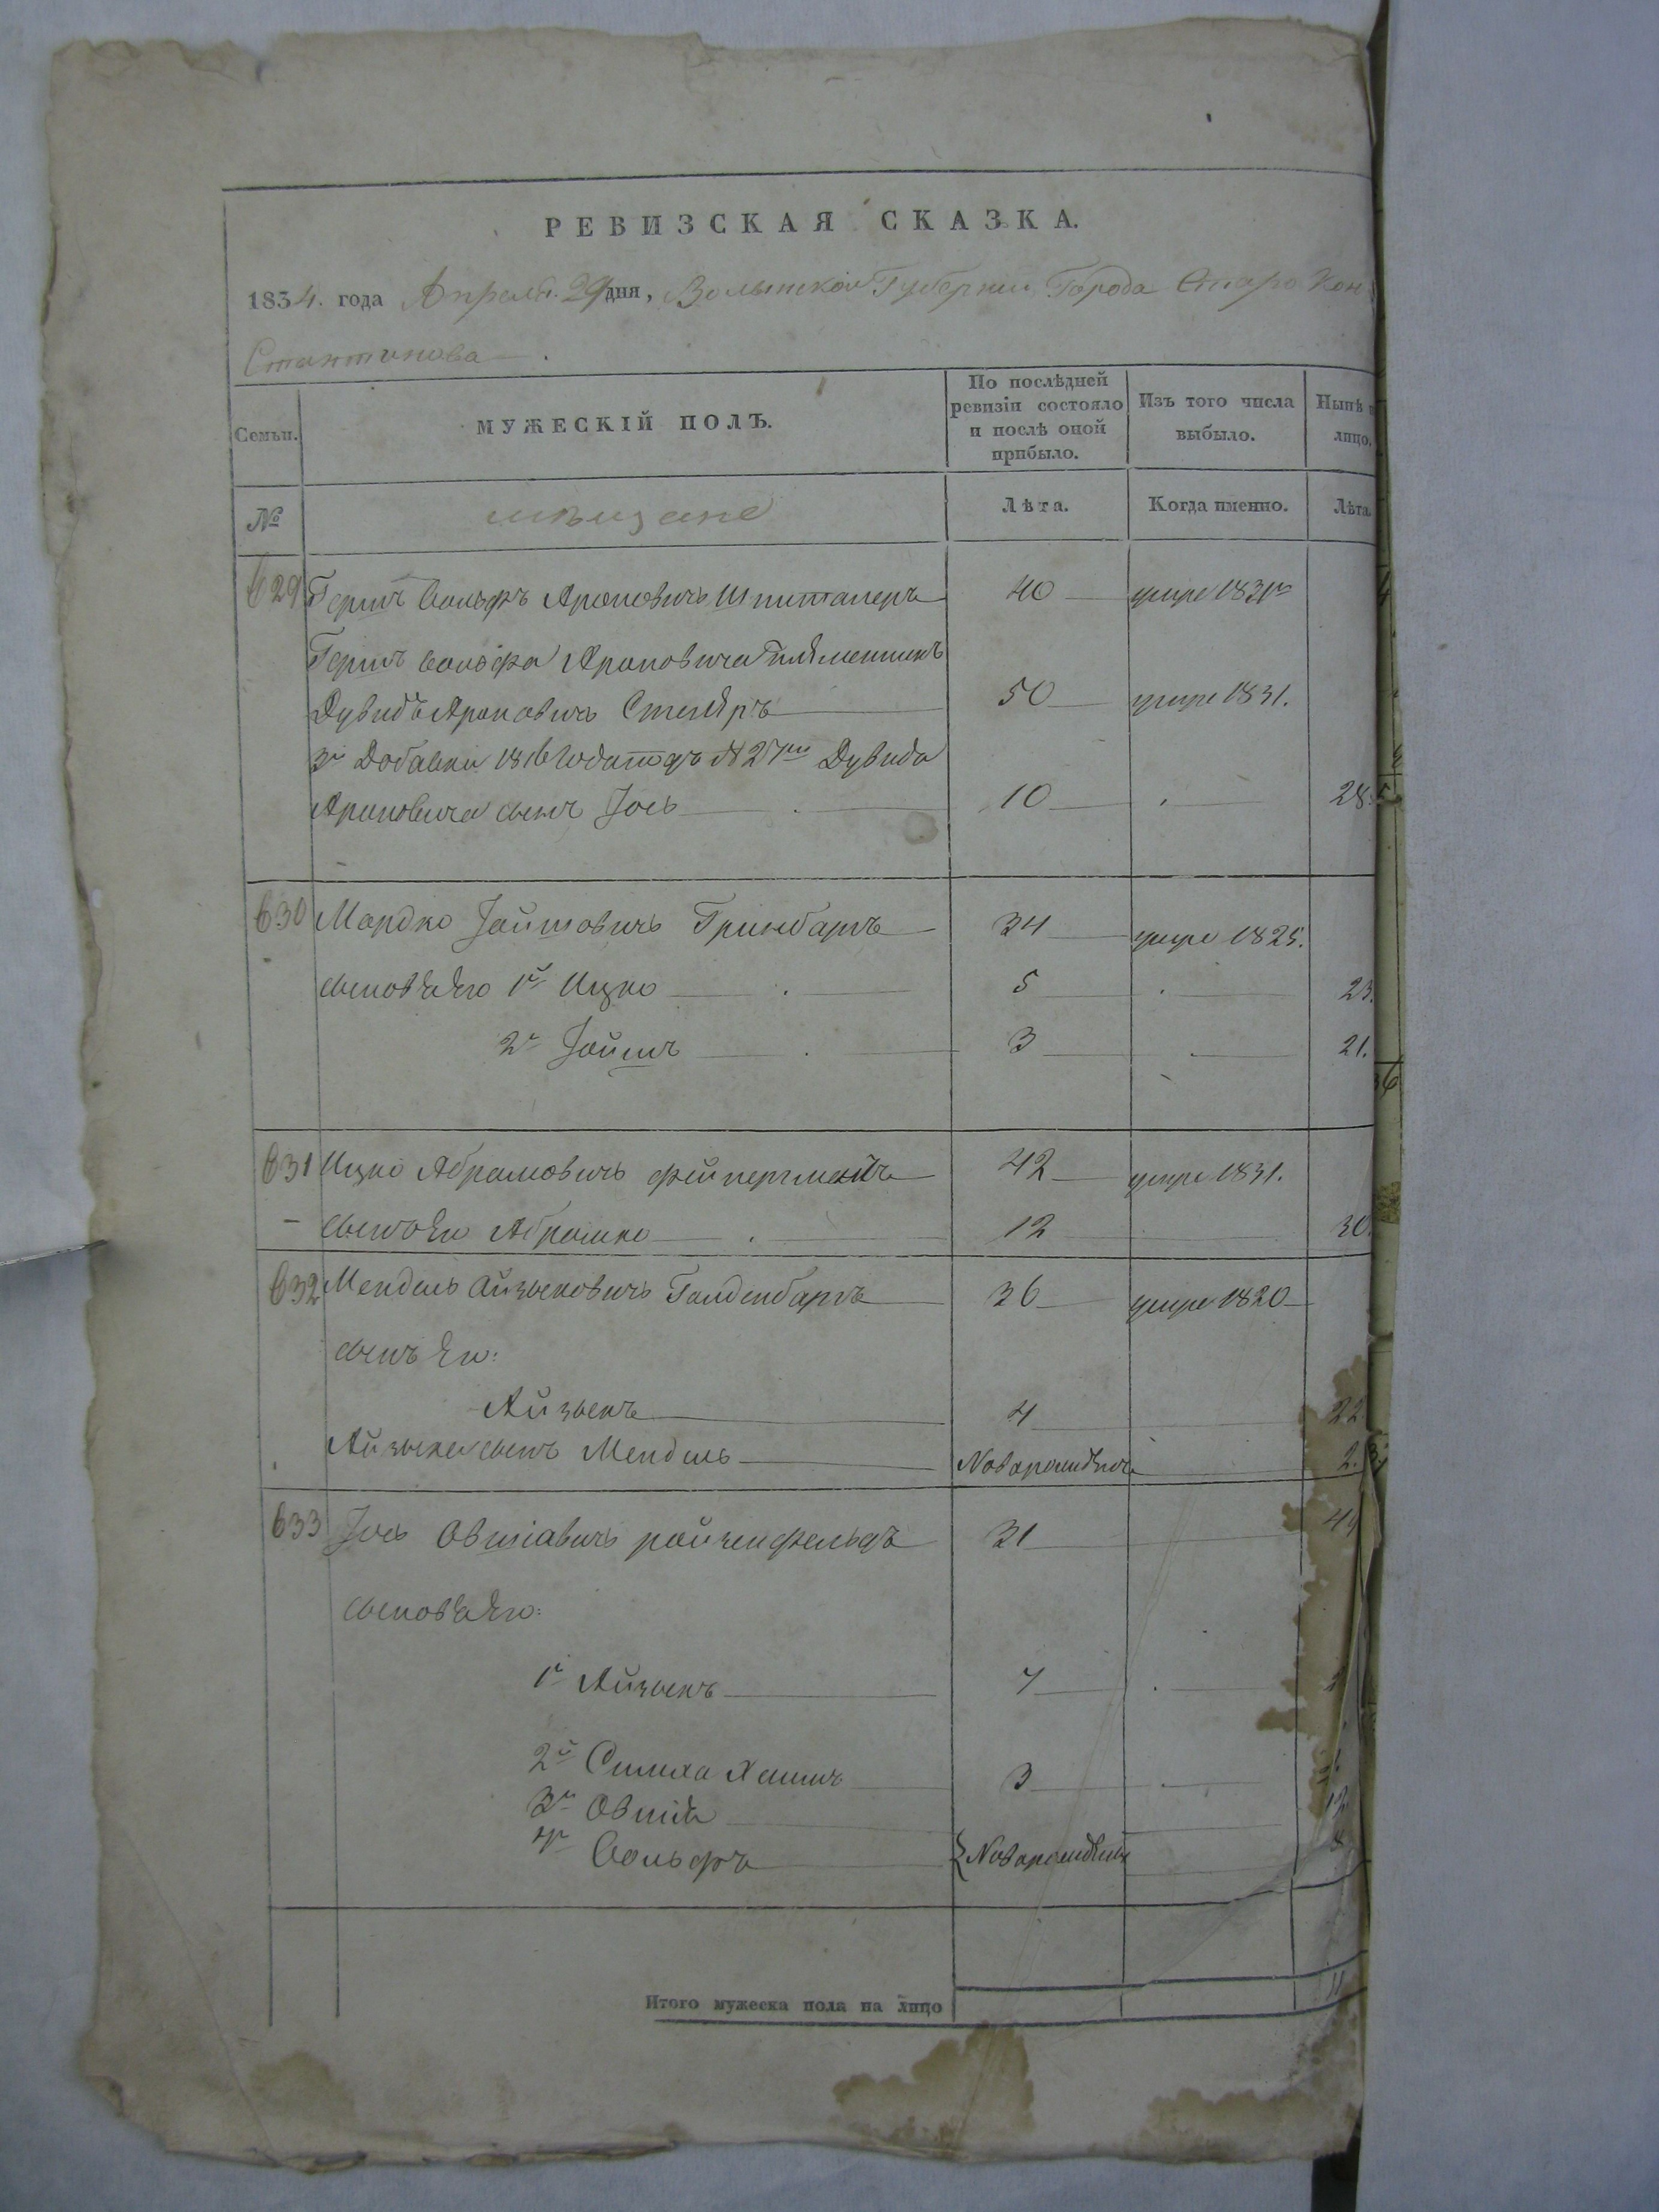 РЕВИЗСКАЯ СКАЗКА.
1834. года Апреля 29 дня, Волынской Губернии Города Старо Кон
Стантинова
Семьи. МУЖЕСКІЙ ПОЛЪ. По послѣдней ревизіи состояло и послѣ оной прибыло. Изъ того числа выбыло. Нынѣ лицо.
№ мѣщане Лѣта. Когда именно. Лѣта.
629 Гершъ Вольфъ Ароновичъ Шпиталеръ 40 умре 1831
Гершъ Вольфа Ароновича племенникъ
Дувидъ Ароновичъ Столяръ 50 умре 1831.
Дувида
Ароновича сынъ Іось 10 28
630 Мордко Іойшовичъ Гринбаргъ 34 умре 1825.
сыновья Его 1й Ицко 5 23.
2й Іойшъ 3 21.
631 Ицко Абрамовичъ 42 умре 1831.
сынъ Его Абрамко 12 30.
632 Мендель Айзыковичъ Голденбаргъ 36 умре 1820
сынъ Его:
Айзыкъ 4 22
Айзыка сынъ Мендель Новорожденъ 2.
633 Іось Овшіовичъ ройзенфельдъ 31 49
сыновья Его:
1й Айзыкъ 7
2й Симха Хаимъ 3
3й Овшія 12
4й Вольфъ Новорожденны 8
Итого мужеска пола на лицо 11